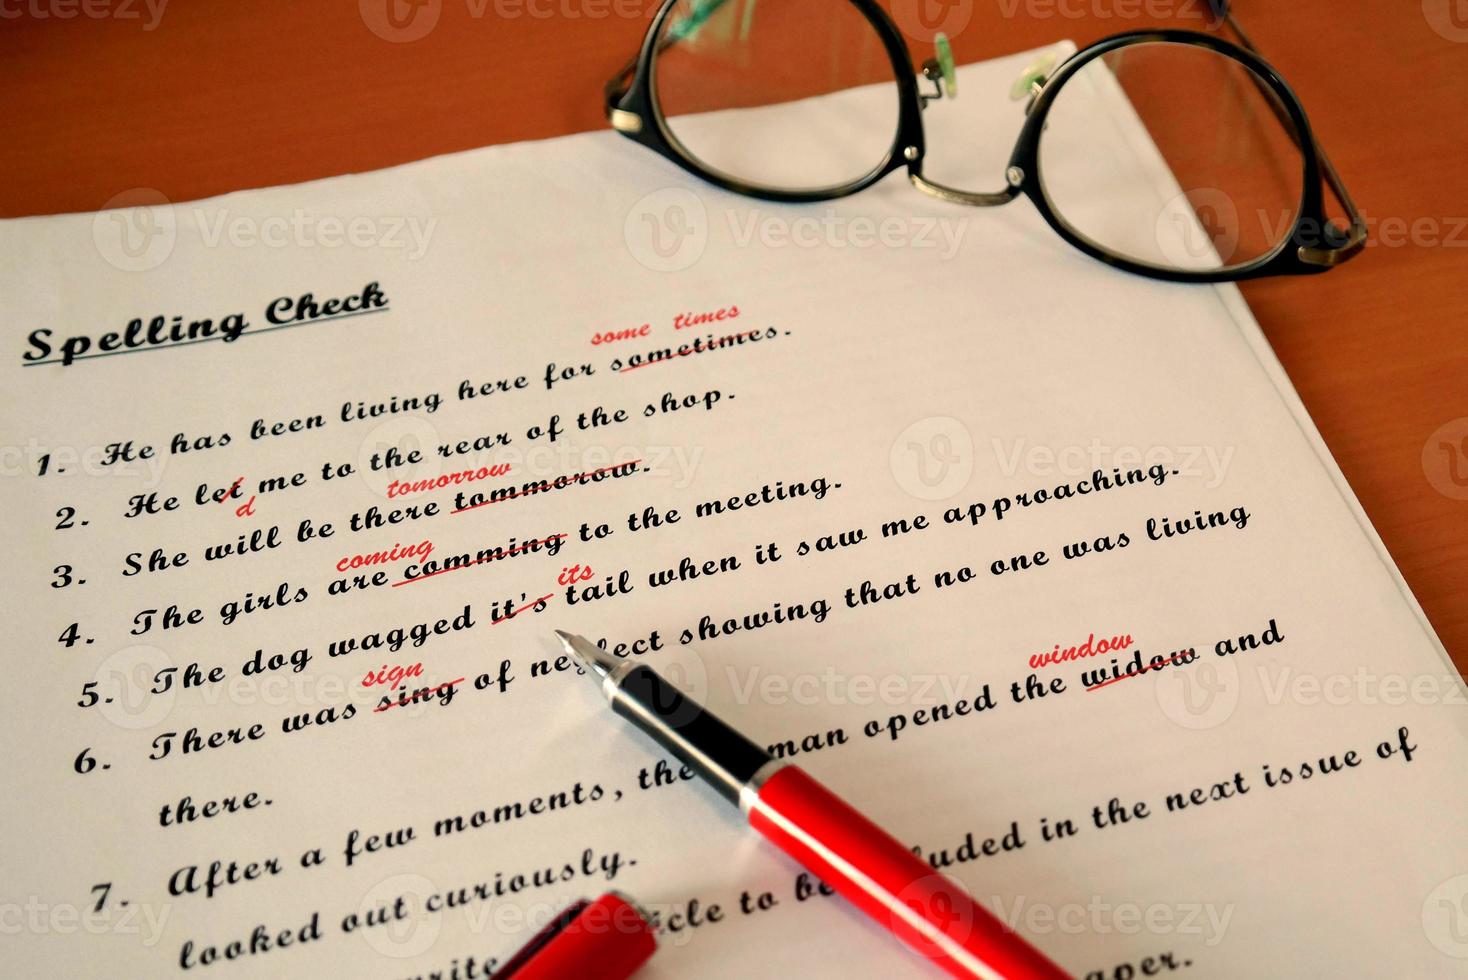 Spelling Check
some times
1. He has been living here for sometimes.
2. He let me to the rear of the shop.
d
tomorrow
3. She will be there tommorow.
coming
4. The girls are comming to the meeting.
its
5. The dog wagged it's tail when it saw me approaching.
sign
6. There was sing of neglect showing that no one was living
there.
window
7. After a few moments, the man opened the widow and
looked out curiously.
to be in the next issue of
Vecteezy